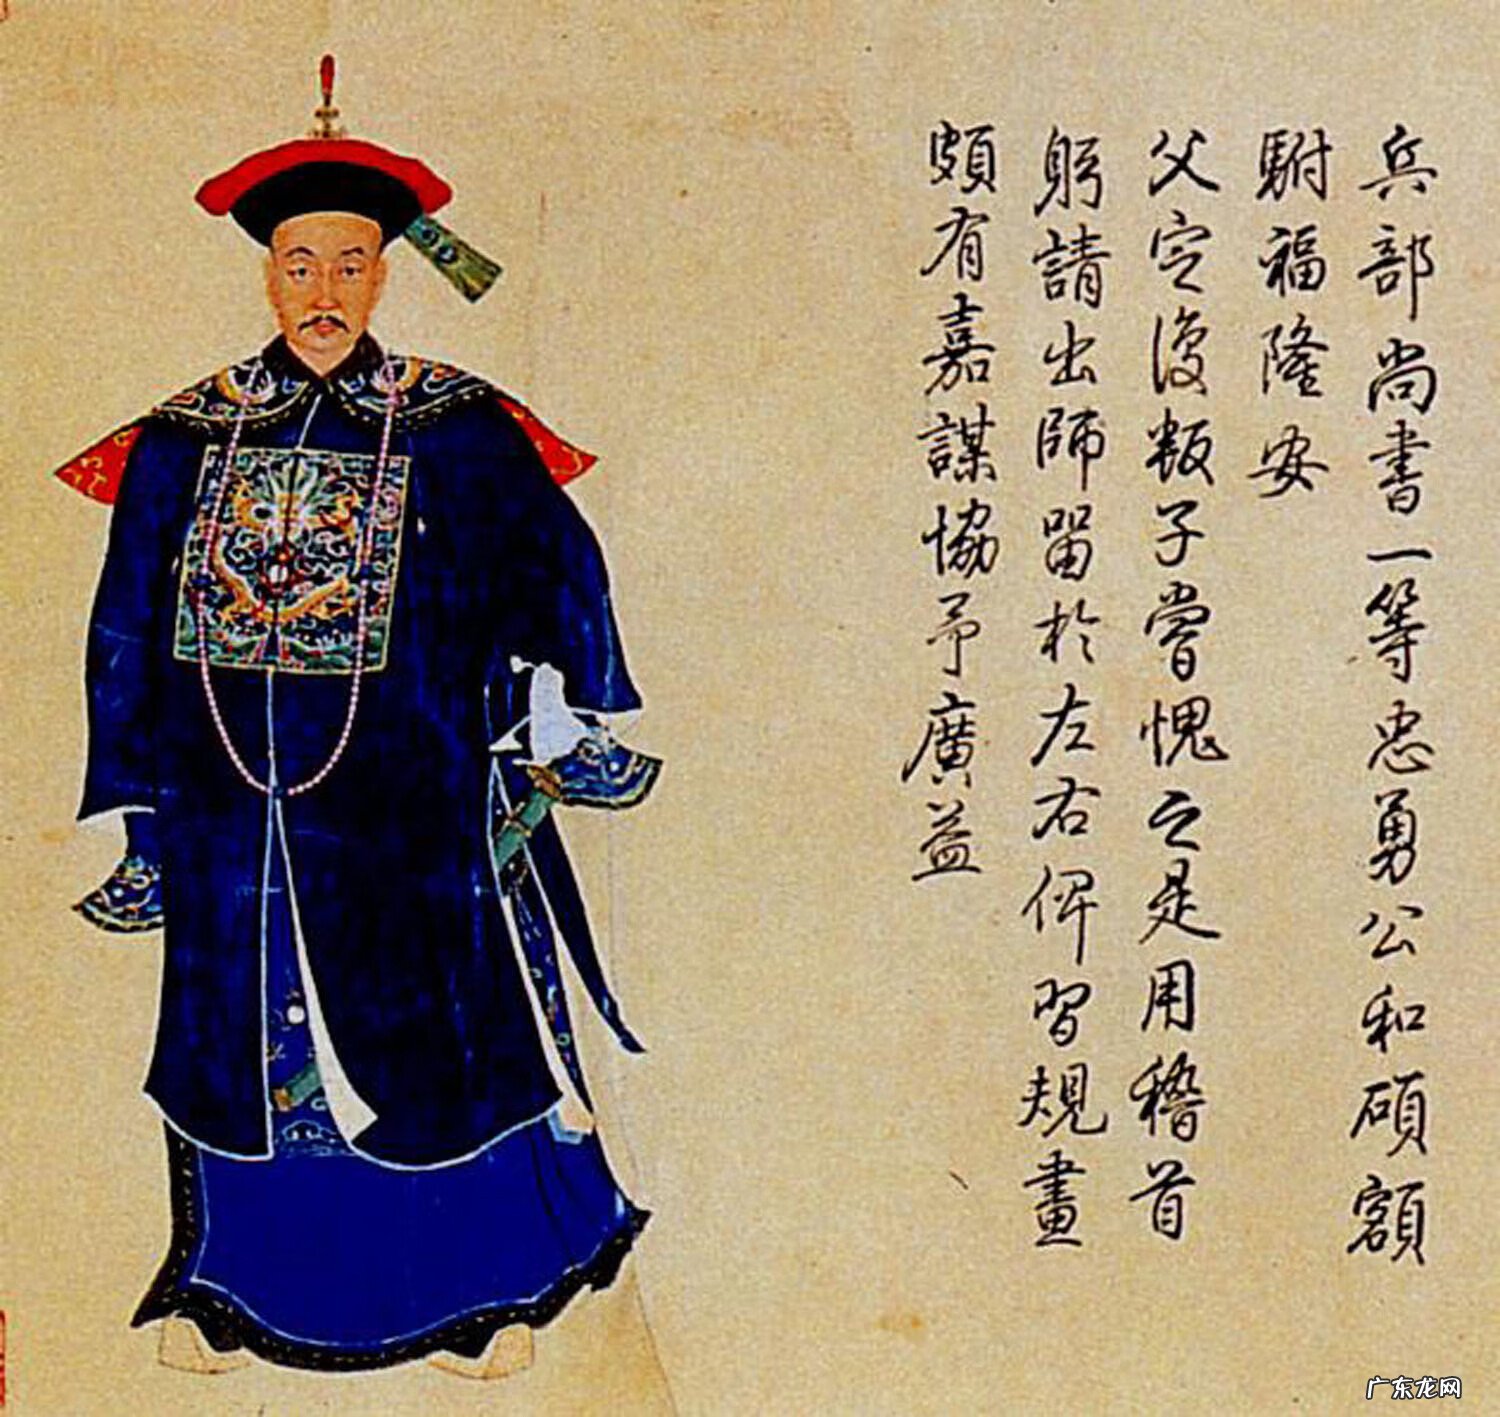 兵部尚書一等忠勇公和碩額
駙福隆安
父定後叛子嘗愧之是用稽首
躬請出師留於左右俾習規畫
頗有嘉謀協予廣益
广东龙网